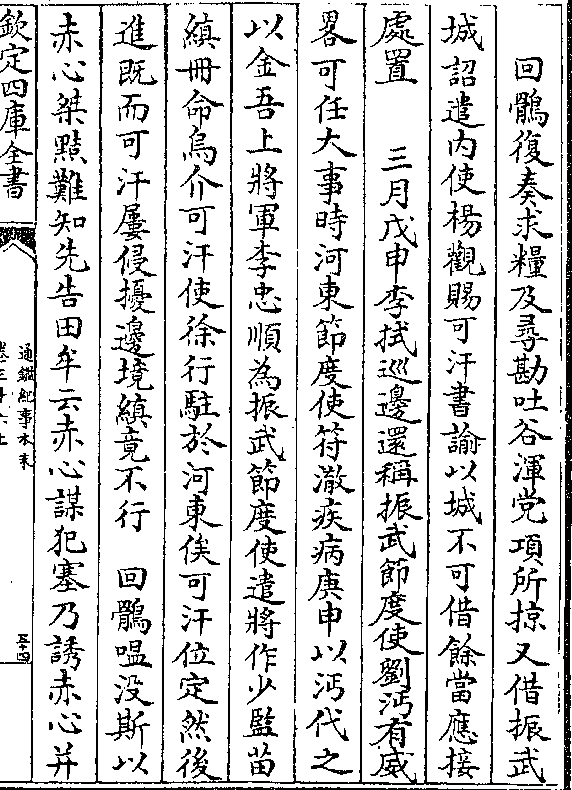 回鶻復奏求糧及尋勘吐谷渾党項所掠又借振武
城詔遣内使楊觀賜可汗書諭以城不可借餘當應接
處置　三月戊申李拭巡邊還稱振武節度使劉沔有威
畧可任大事時河東節度使苻澈疾病庚申以沔代之
以金吾上將軍李忠順為振武節度使遣將作少監苗
縝冊命烏介可汗使徐行駐於河東俟可汗位定然後
進既而可汗屢侵擾邊境縝竟不行　回鶻嗢没斯以
赤心桀黠難知先告田牟云赤心謀犯塞乃誘赤心并
欽定四庫全書
通鑑紀事本末
五十四